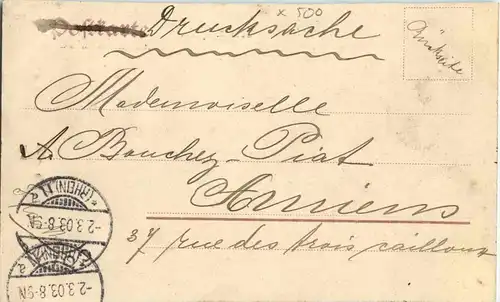 x 500
Postkarte Drucksache
Rückseite
Mademoiselle
A. Bouchez-Piat
Amiens
37 rue des trois cailloux
(RHEIN) 1
-2.3.03.8-9N
(RHEIN)
-2.3.03.8-9N